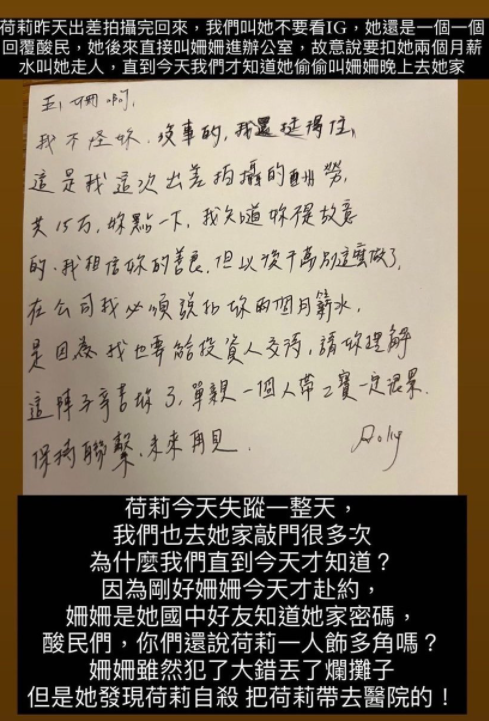 荷莉昨天出差拍攝完回來，我們叫她不要看IG，她還是一個一個
回覆酸民，她後來直接叫姍姍進辦公室，故意說要扣她兩個月薪
水叫她走人，直到今天我們才知道她偷偷叫姍姍晚上去她家
姍啊，
我不怪妳，沒事的，我還挺得住，
這是我這次出差拍攝的酬勞，
共15万，妳點一下，我知道妳不是故意
的，我相信妳的善良，但以後千萬別這麼做了，
在公司我必須說扣妳兩個月薪水，
是因為我也要給投資人交待，請妳理解
這陣子辛苦妳了，單親一個人帶二寶一定很累．
保持聯繫，未來再見．
荷莉今天失蹤一整天，
我們也去她家敲門很多次
為什麼我們直到今天才知道？
因為剛好姍姍今天才赴約，
姍姍是她國中好友知道她家密碼，
酸民們，你們還說荷莉一人飾多角嗎？
姍姍雖然犯了大錯丟了爛攤子
但是她發現荷莉自殺 把荷莉帶去醫院的！